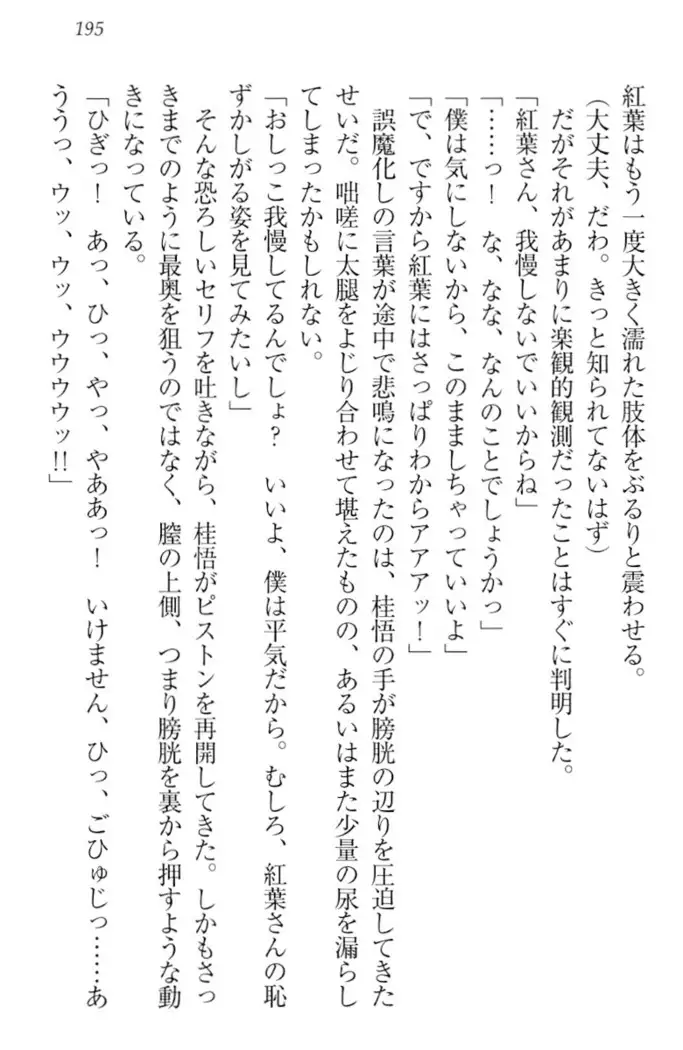 195
紅葉はもう一度大きく濡れた肢体をぶるりと震わせる。
(大丈夫、だわ。きっと知られてないはず)
だがそれがあまりに楽観的観測だったことはすぐに判明した。
「紅葉さん、我慢しないでいいからね」
「……っ！　な、なな、なんのことでしょうかっ」
「僕は気にしないから、このまましちゃっていいよ」
「で、ですから紅葉にはさっぱりわからアアアッ！」
誤魔化しの言葉が途中で悲鳴になったのは、桂悟の手が膀胱の辺りを圧迫してきた
せいだ。咄嗟に太腿をよじり合わせて堪えたものの、あるいはまた少量の尿を漏らし
てしまったかもしれない。
「おしっこ我慢してるんでしょ？　いいよ、僕は平気だから。むしろ、紅葉さんの恥
ずかしがる姿を見てみたいし」
そんな恐ろしいセリフを吐きながら、桂悟がピストンを再開してきた。しかもさっ
きまでのように最奥を狙うのではなく、膣の上側、つまり膀胱を裏から押すような動
きになっている。
「ひぎっ！　あっ、ひっ、やっ、やああっ！　いけません、ひっ、ごひゅじっ……あ
ううっ、ウッ、ウッ、ウウウウッ!!」